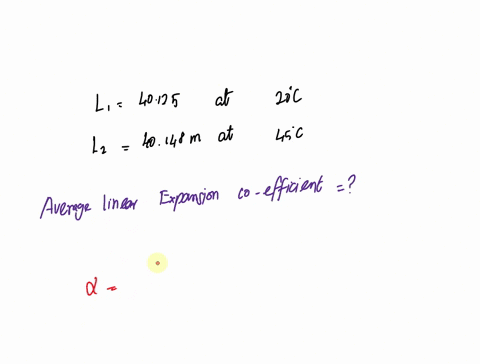 L₁ = 40.125 at 20°C
L₂ = 40.148 m at 45°C
Average linear Expansion co-efficient = ?
α =